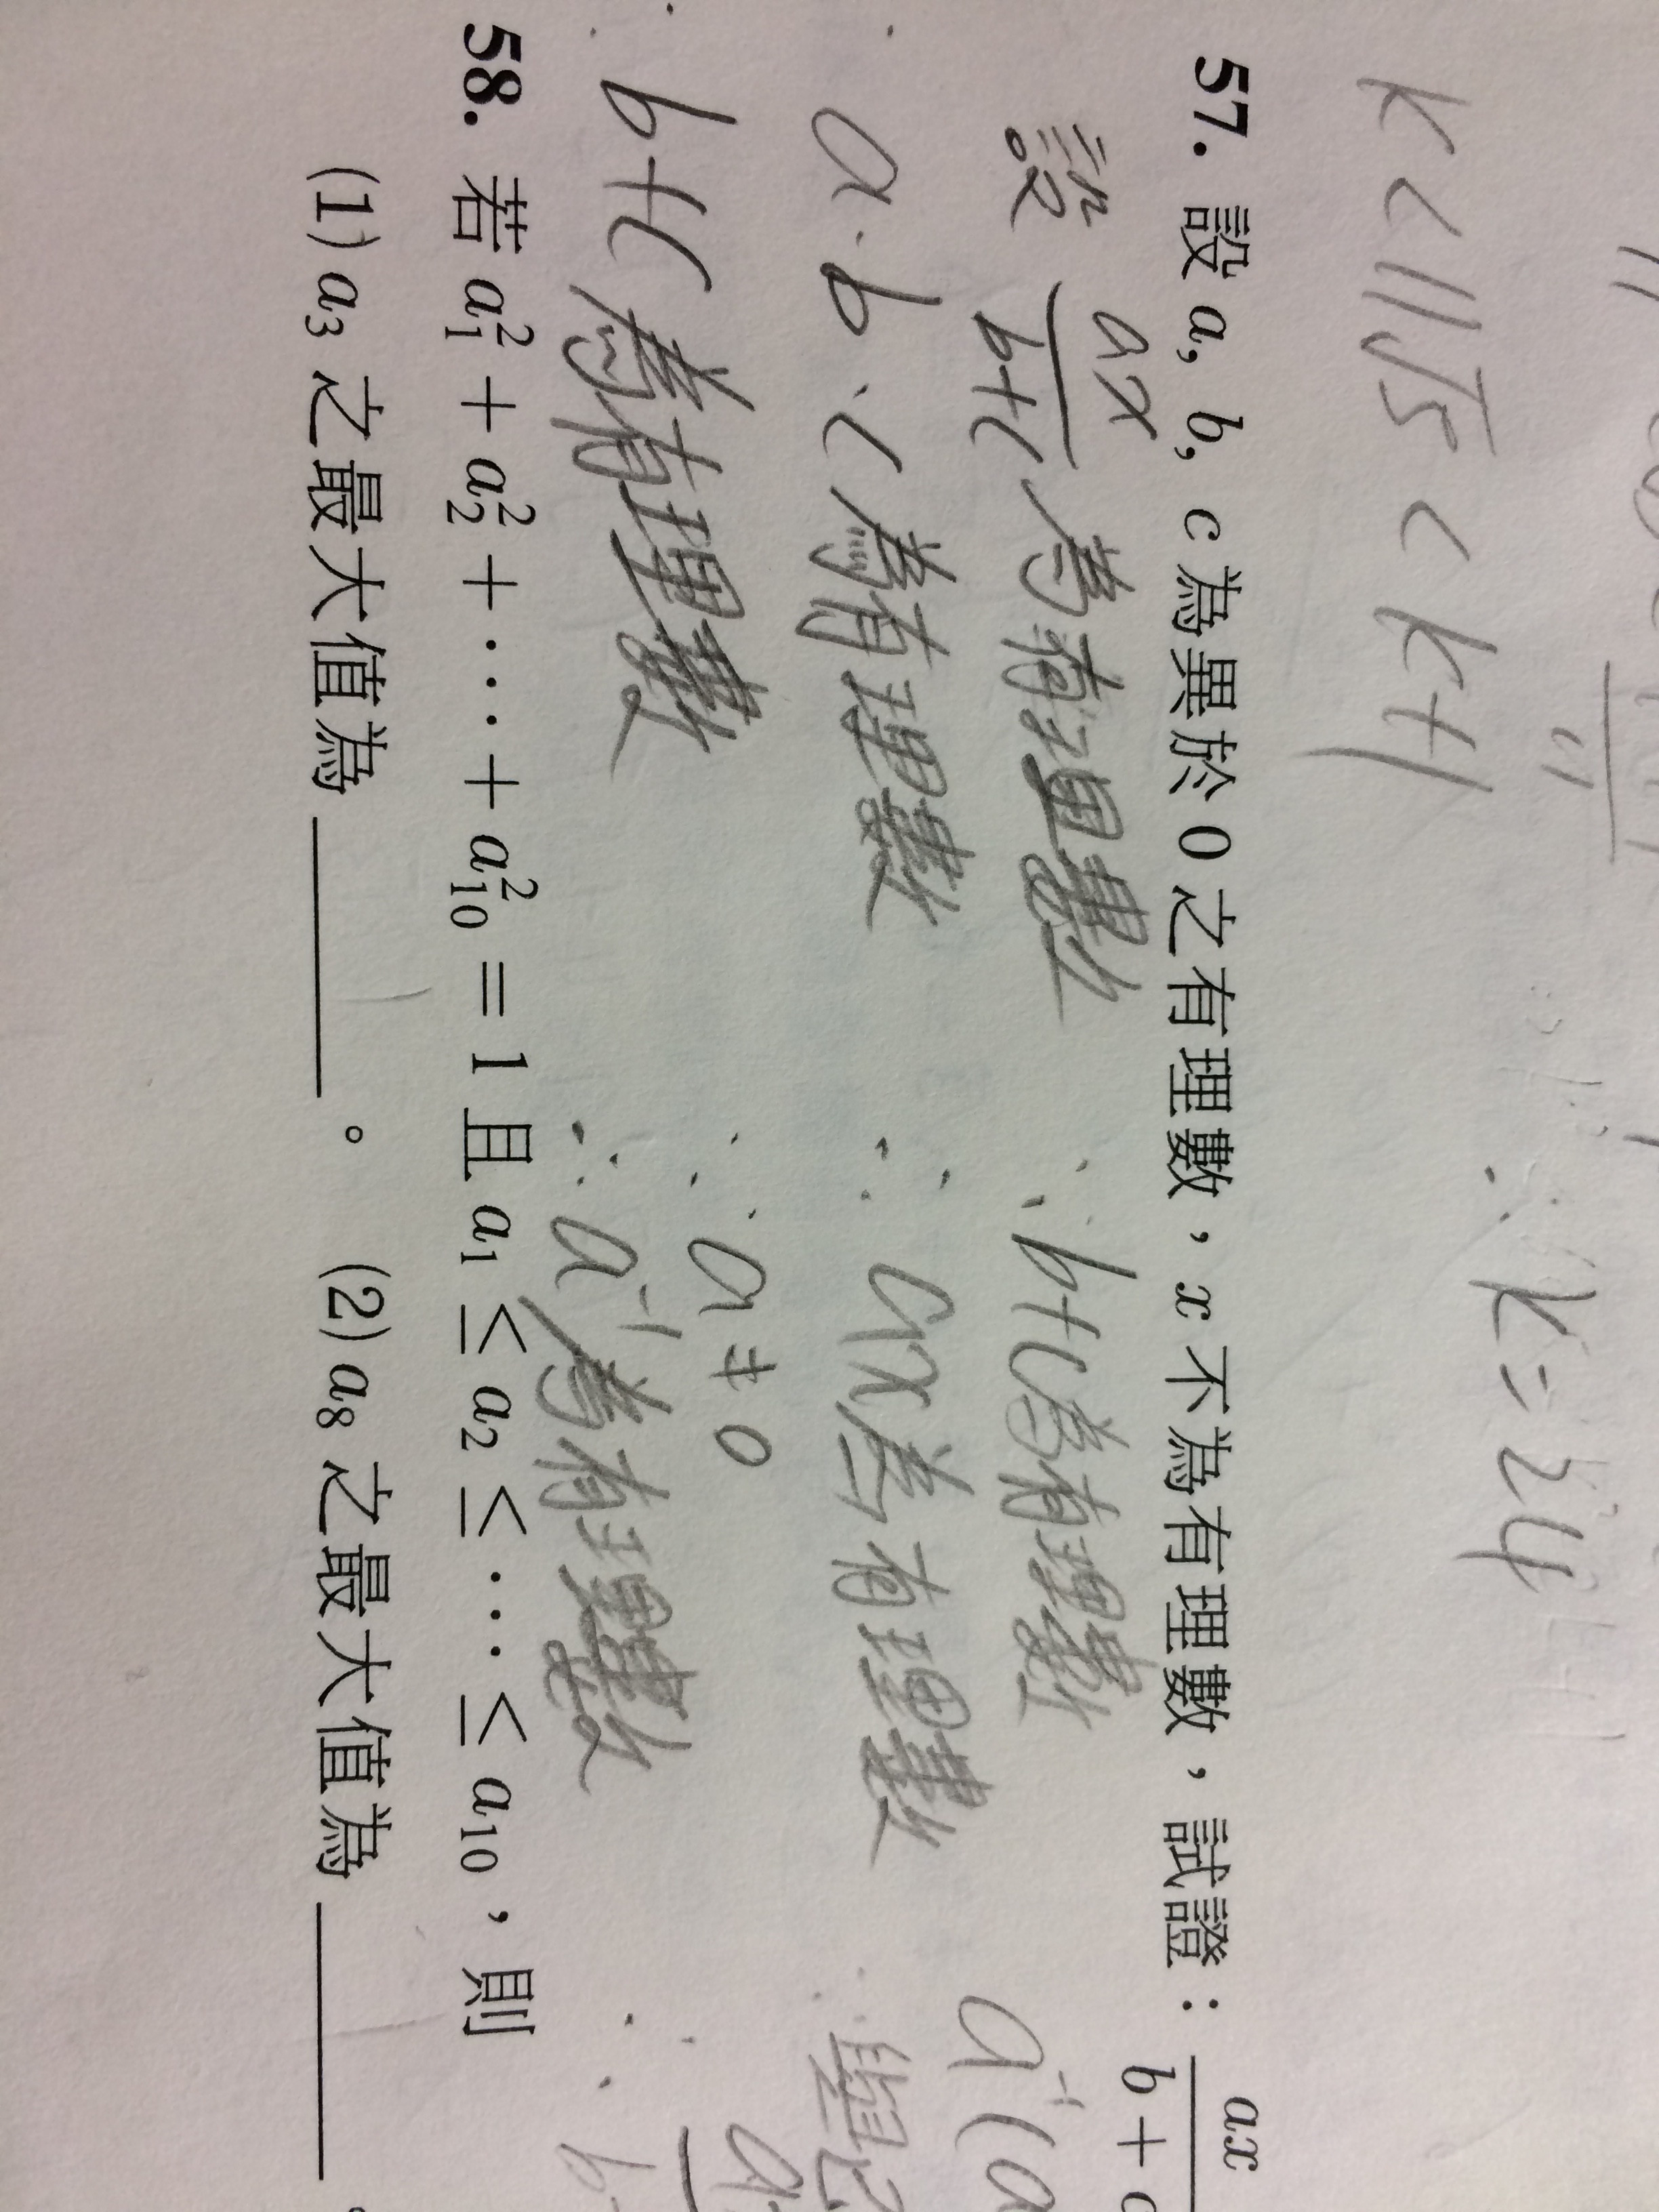 K < 11√5 < K+1
∴ K = 24
57. 設 a, b, c 為異於 0 之有理數，x 不為有理數，試證：ax/b + c
設 ax/b+c 為有理數 ∴ b+c為有理數 a⁻¹(a
a、b、c 為有理數 ∴ ax為有理數
∵ a ≠ 0
b+c 為有理數 ∴ a⁻¹為有理數
58. 若 a₁² + a₂² + ⋯ + a₁₀² = 1 且 a₁ ≤ a₂ ≤ ⋯ ≤ a₁₀，則
(1) a₃ 之最大值為 ______ 。 (2) a₈ 之最大值為 ______ 。